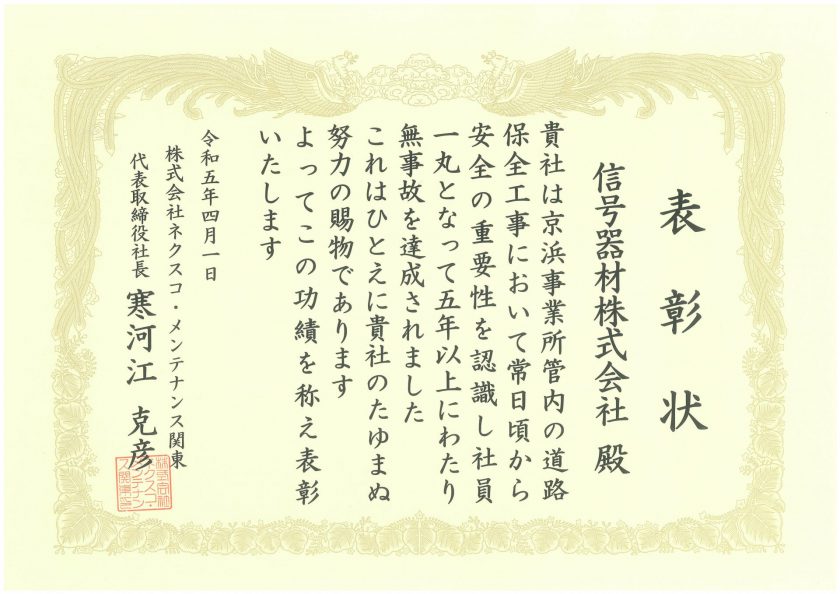 表彰状
信号器材株式会社 殿
貴社は京浜事業所管内の道路
保全工事において常日頃から
安全の重要性を認識し社員
一丸となって五年以上にわたり
無事故を達成されました
これはひとえに貴社のたゆまぬ
努力の賜物であります
よってこの功績を称え表彰
いたします
令和五年四月一日
株式会社ネクスコ・メンテナンス関東
代表取締役社長 寒河江 克彦